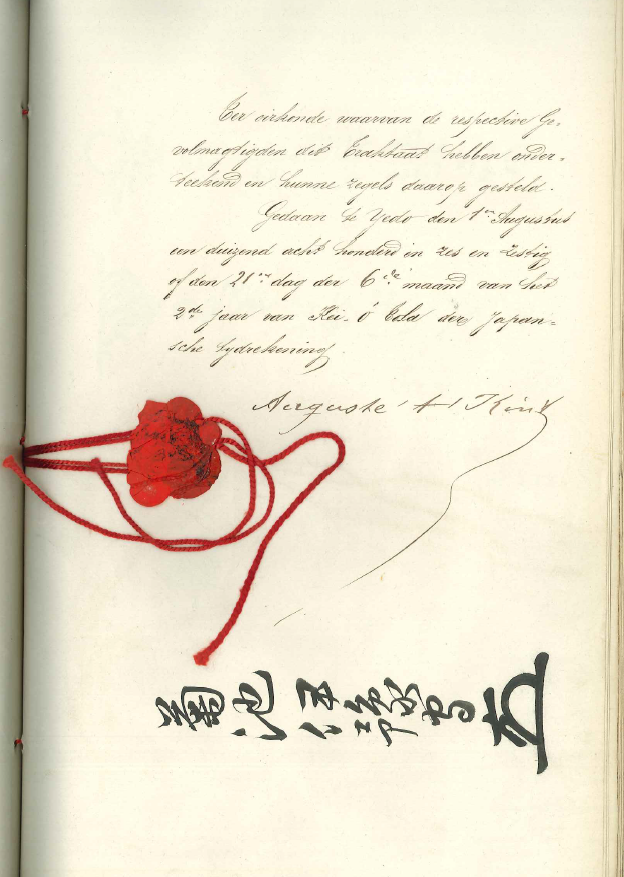 Ter oirkonde waarvan de respective Ge-
volmagtigden dit Traktaat hebben onder-
teekend en hunne zegels daarop gesteld.
Gedaan te Yedo den 1en Augustus
een duizend acht honderd en zes en zestig
of den 21en dag der 6de maand van het
2de jaar van Kei-ó der Japan-
sche tydrekening.
Auguste t'Kint
菊池伊豫守